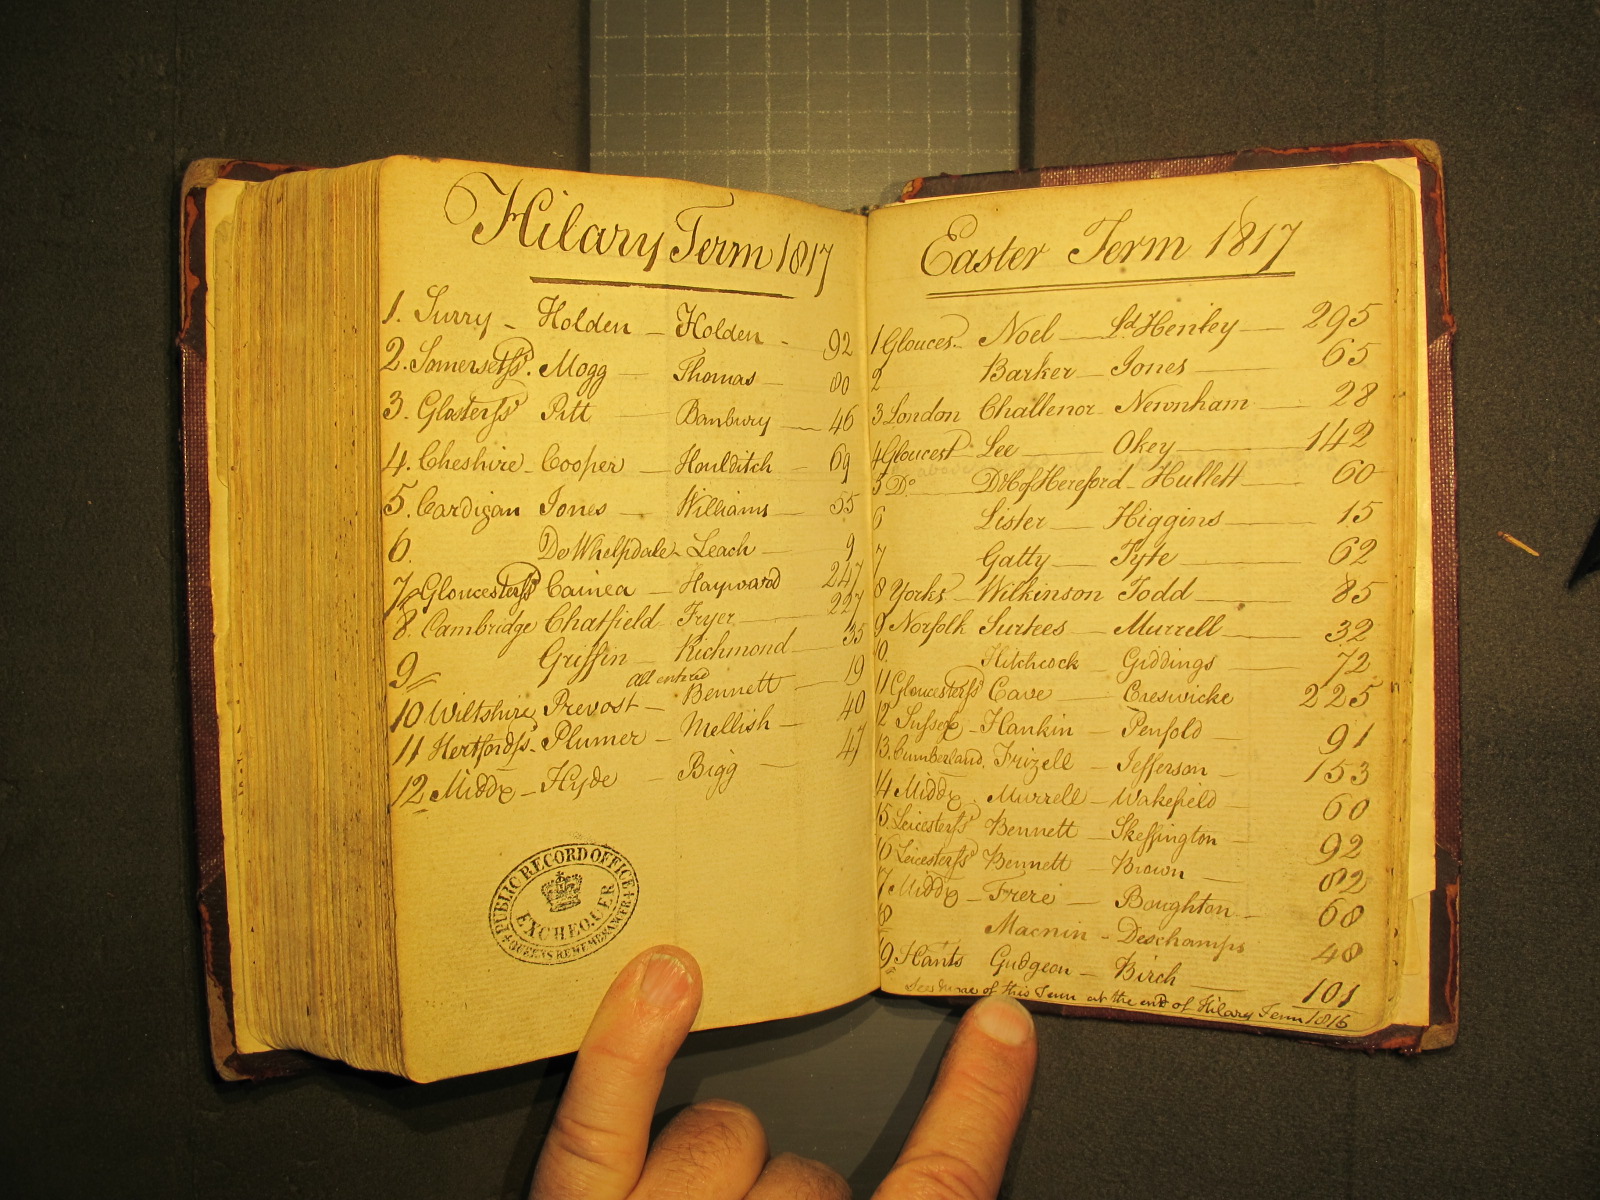 Hilary Term 1817
1. Surry - Holden - Holden - 92
2. Somersetss. Mogg - Thomas - 80
3. Glosterss Pitt - Banbury - 46
4. Cheshire - Cooper - Houlditch - 69
5. Cardigan Jones - Williams - 55
6. De Whelpdale - Leach - 9
7 Gloucesterss Cainea - Hayward 247
8. Cambridge Chatfield - Fryer - 227
9 Griffin - Richmond - 35
All entired
10 Wiltshire Prevost - Bennett - 19
11 Hertfordss. Plumer - Mellish - 40
12 Middx - Hyde - Bigg - 47
PUBLIC RECORD OFFICE
EXCHEQUER
QUEENS REMEMBRANCER
Easter Term 1817
1 Glouces. Noel - Ld. Henley - 295
2 Barker - Jones - 65
3 London Challenor - Newnham - 28
4 Gloucest Lee - Okey - 142
5 Do. - D & C of Hereford - Hullett - 60
6 Lister - Higgins - 15
7 Gatty - Tyte - 62
8 Yorks - Wilkinson Todd - 85
9 Norfolk Surtees - Murrell - 32
10. Hitchcock - Giddings - 72
11 Gloucesterss Cave - Creswicke 225
12 Sussex - Hankin - Penfold - 91
13. Cumberland. Frizell - Jefferson - 153
14 Middx. Murrell - Wakefield - 60
15. Leicesterss Bennett - Skeffington - 92
16 Leicesterss Bennett - Brown - 82
17 Middx - Frere - Boughton - 68
18 Macnin - Deschamps 48
19 Hants Gudgeon - Birch - 101
of this Term at the end of Hilary Term 1816